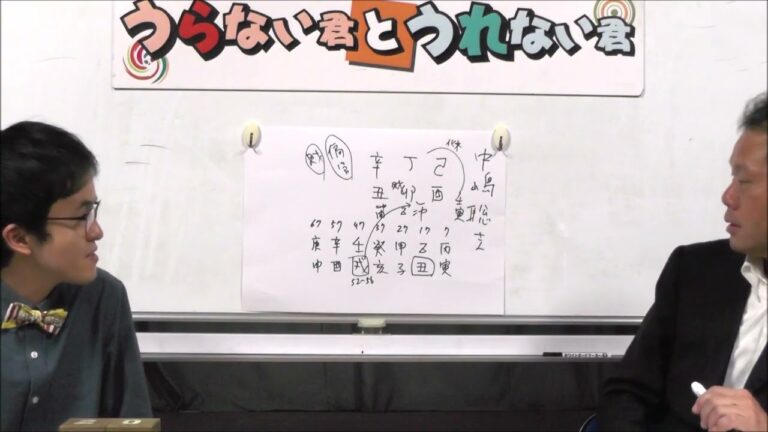 うらない君とうれない君
中嶋聡さん
財 偏官
辛 丁 己
丑 卯 酉 寅
冲
67 57 47 37 27 17 7
庚 辛 壬 癸 甲 乙 丙
申 酉 戌 亥 子 丑 寅
52-56